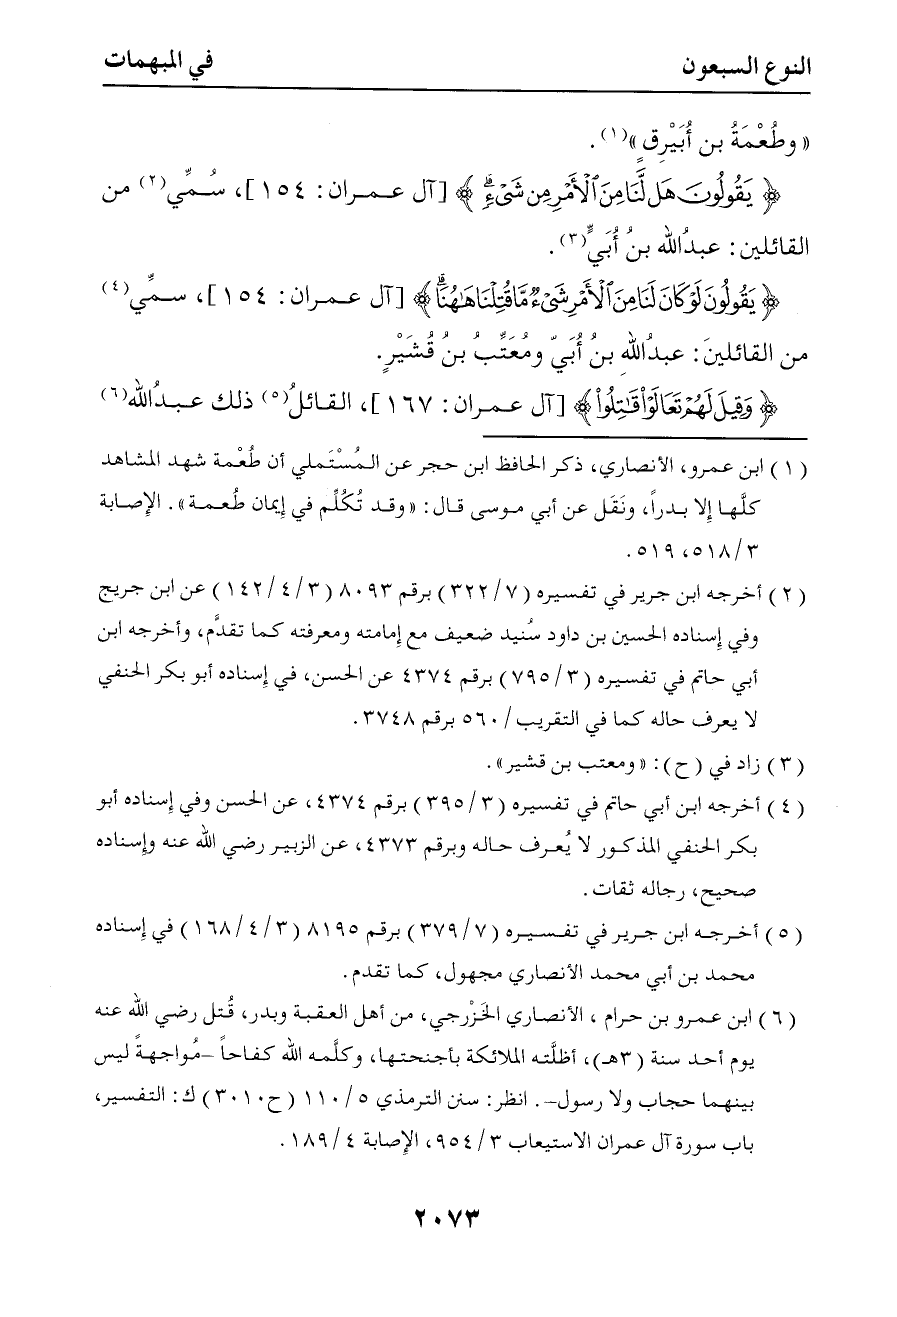 النوع السبعون في المبهمات
«وطُعْمَةُ بن أُبَيْرِقٍ»(١).
﴿يَقُولُونَ هَل لَّنَا مِنَ ٱلْأَمْرِ مِن شَىْءٍ﴾ [آل عمران: ١٥٤]، سُمِّي(٢) من
القائلين: عبدُالله بنُ أُبَيٍّ(٣).
﴿يَقُولُونَ لَوْ كَانَ لَنَا مِنَ ٱلْأَمْرِ شَىْءٌ مَّا قُتِلْنَا هَٰهُنَا﴾ [آل عمران: ١٥٤]، سمِّي(٤)
من القائلينَ: عبدُاللهِ بنُ أُبَيّ ومُعَتِّبُ بنُ قُشَيْرٍ.
﴿وَقِيلَ لَهُمْ تَعَالَوْا۟ قَٰتِلُوا۟﴾ [آل عمران: ١٦٧]، القائلُ(٥) ذلك عبدُالله(٦)
(١) ابن عمرو، الأنصاري، ذكر الحافظ ابن حجر عن المُسْتَملي أن طُعْمة شهد المشاهد
كلَّها إلا بدراً، ونَقَل عن أبي موسى قال: «وقد تُكُلِّم في إيمان طُعمة». الإصابة
٣/ ٥١٨، ٥١٩.
(٢) أخرجه ابن جرير في تفسيره (٧/ ٣٢٢) برقم ٨٠٩٣ (٣/ ٤/ ١٤٢) عن ابن جريج
وفي إسناده الحسين بن داود سُنيد ضعيف مع إمامته ومعرفته كما تقدَّم، وأخرجه ابن
أبي حاتم في تفسيره (٣/ ٧٩٥) برقم ٤٣٧٤ عن الحسن، في إسناده أبو بكر الحنفي
لا يعرف حاله كما في التقريب/ ٥٦٠ برقم ٣٧٤٨.
(٣) زاد في (ح): «ومعتب بن قشير».
(٤) أخرجه ابن أبي حاتم في تفسيره (٣/ ٣٩٥) برقم ٤٣٧٤، عن الحسن وفي إسناده أبو
بكر الحنفي المذكور لا يُعرف حاله وبرقم ٤٣٧٣، عن الزبير رضي الله عنه وإسناده
صحيح، رجاله ثقات.
(٥) أخرجه ابن جرير في تفسيره (٧/ ٣٧٩) برقم ٨١٩٥ (٣/ ٤/ ١٦٨) في إسناده
محمد بن أبي محمد الأنصاري مجهول، كما تقدم.
(٦) ابن عمرو بن حرام، الأنصاري الخَزْرجي، من أهل العقبة وبدر، قُتل رضي الله عنه
يوم أحد سنة (٣هـ)، أظلَّته الملائكة بأجنحتها، وكلَّمه الله كفاحاً -مُواجهةً ليس
بينهما حجاب ولا رسول-. انظر: سنن الترمذي ٥/ ١١٠ (ح٣٠١٠) ك: التفسير،
باب سورة آل عمران الاستيعاب ٣/ ٩٥٤، الإصابة ٤/ ١٨٩.
٢٠٧٣